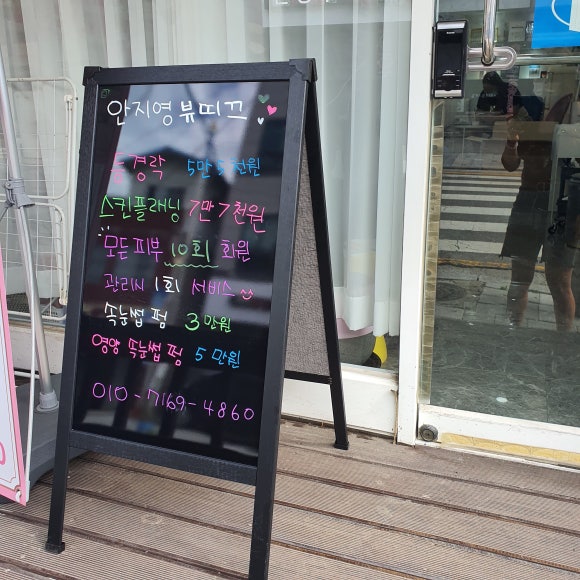 안지영뷰띠끄
등경락 5만5천원
스킨플래닝 7만7천원
모든피부 10회 회원
관리시 1회 서비스
속눈썹 펌 3만원
영양 속눈썹 펌 5만원
010-7169-4860